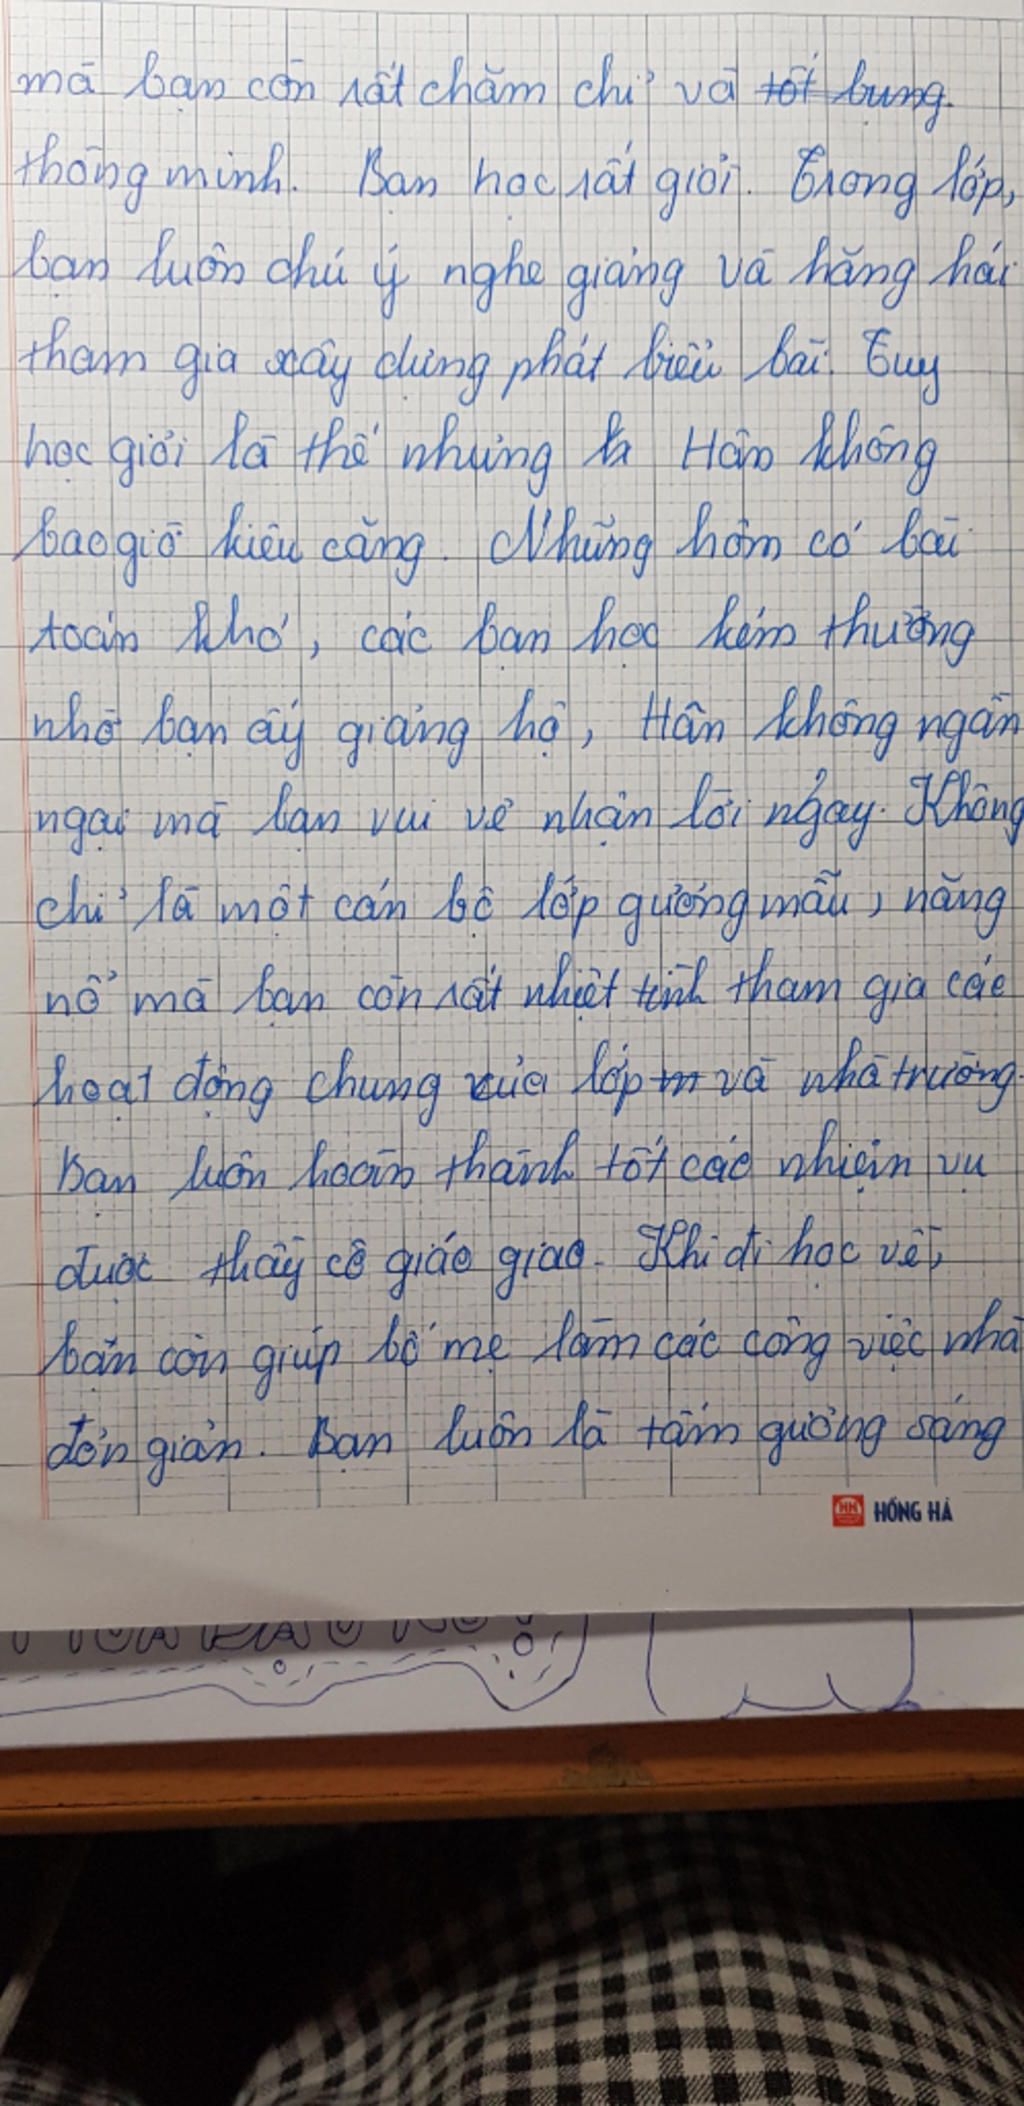 mà bạn còn rất chăm chỉ và tốt bụng.
thông minh. Bạn học rất giỏi. Trong lớp,
bạn luôn chú ý nghe giảng và hăng hái
tham gia xây dựng phát biểu bài. Tuy
học giỏi là thế nhưng Hân không
bao giờ kiêu căng. Những hôm có bài
toán khó, các bạn học kém thường
nhờ bạn ấy giảng hộ, Hân không ngần
ngại mà bạn vui vẻ nhận lời ngay. Không
chỉ là một cán bộ lớp gương mẫu, năng
nổ mà bạn còn rất nhiệt tình tham gia các
hoạt động chung của lớp và nhà trường.
Bạn luôn hoàn thành tốt các nhiệm vụ
được thầy cô giáo giao. Khi đi học về,
bạn còn giúp bố mẹ làm các công việc nhà
đơn giản. Bạn luôn là tấm gương sáng
HỒNG HÀ